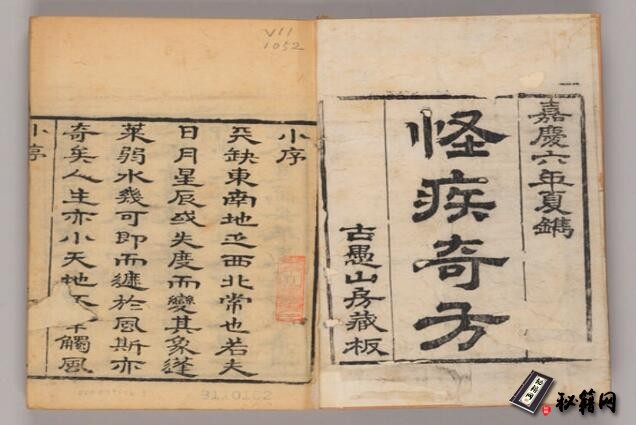 嘉慶六年夏鐫
怪疾奇方
古愚山房藏板
小序
天缺東南地乏西北常也若夫
日月星辰或失度而變其象蓬
萊弱水幾可即而遽於風斯亦
奇矣人生亦小天地 觸風
小序
VII
1052
秘籍网